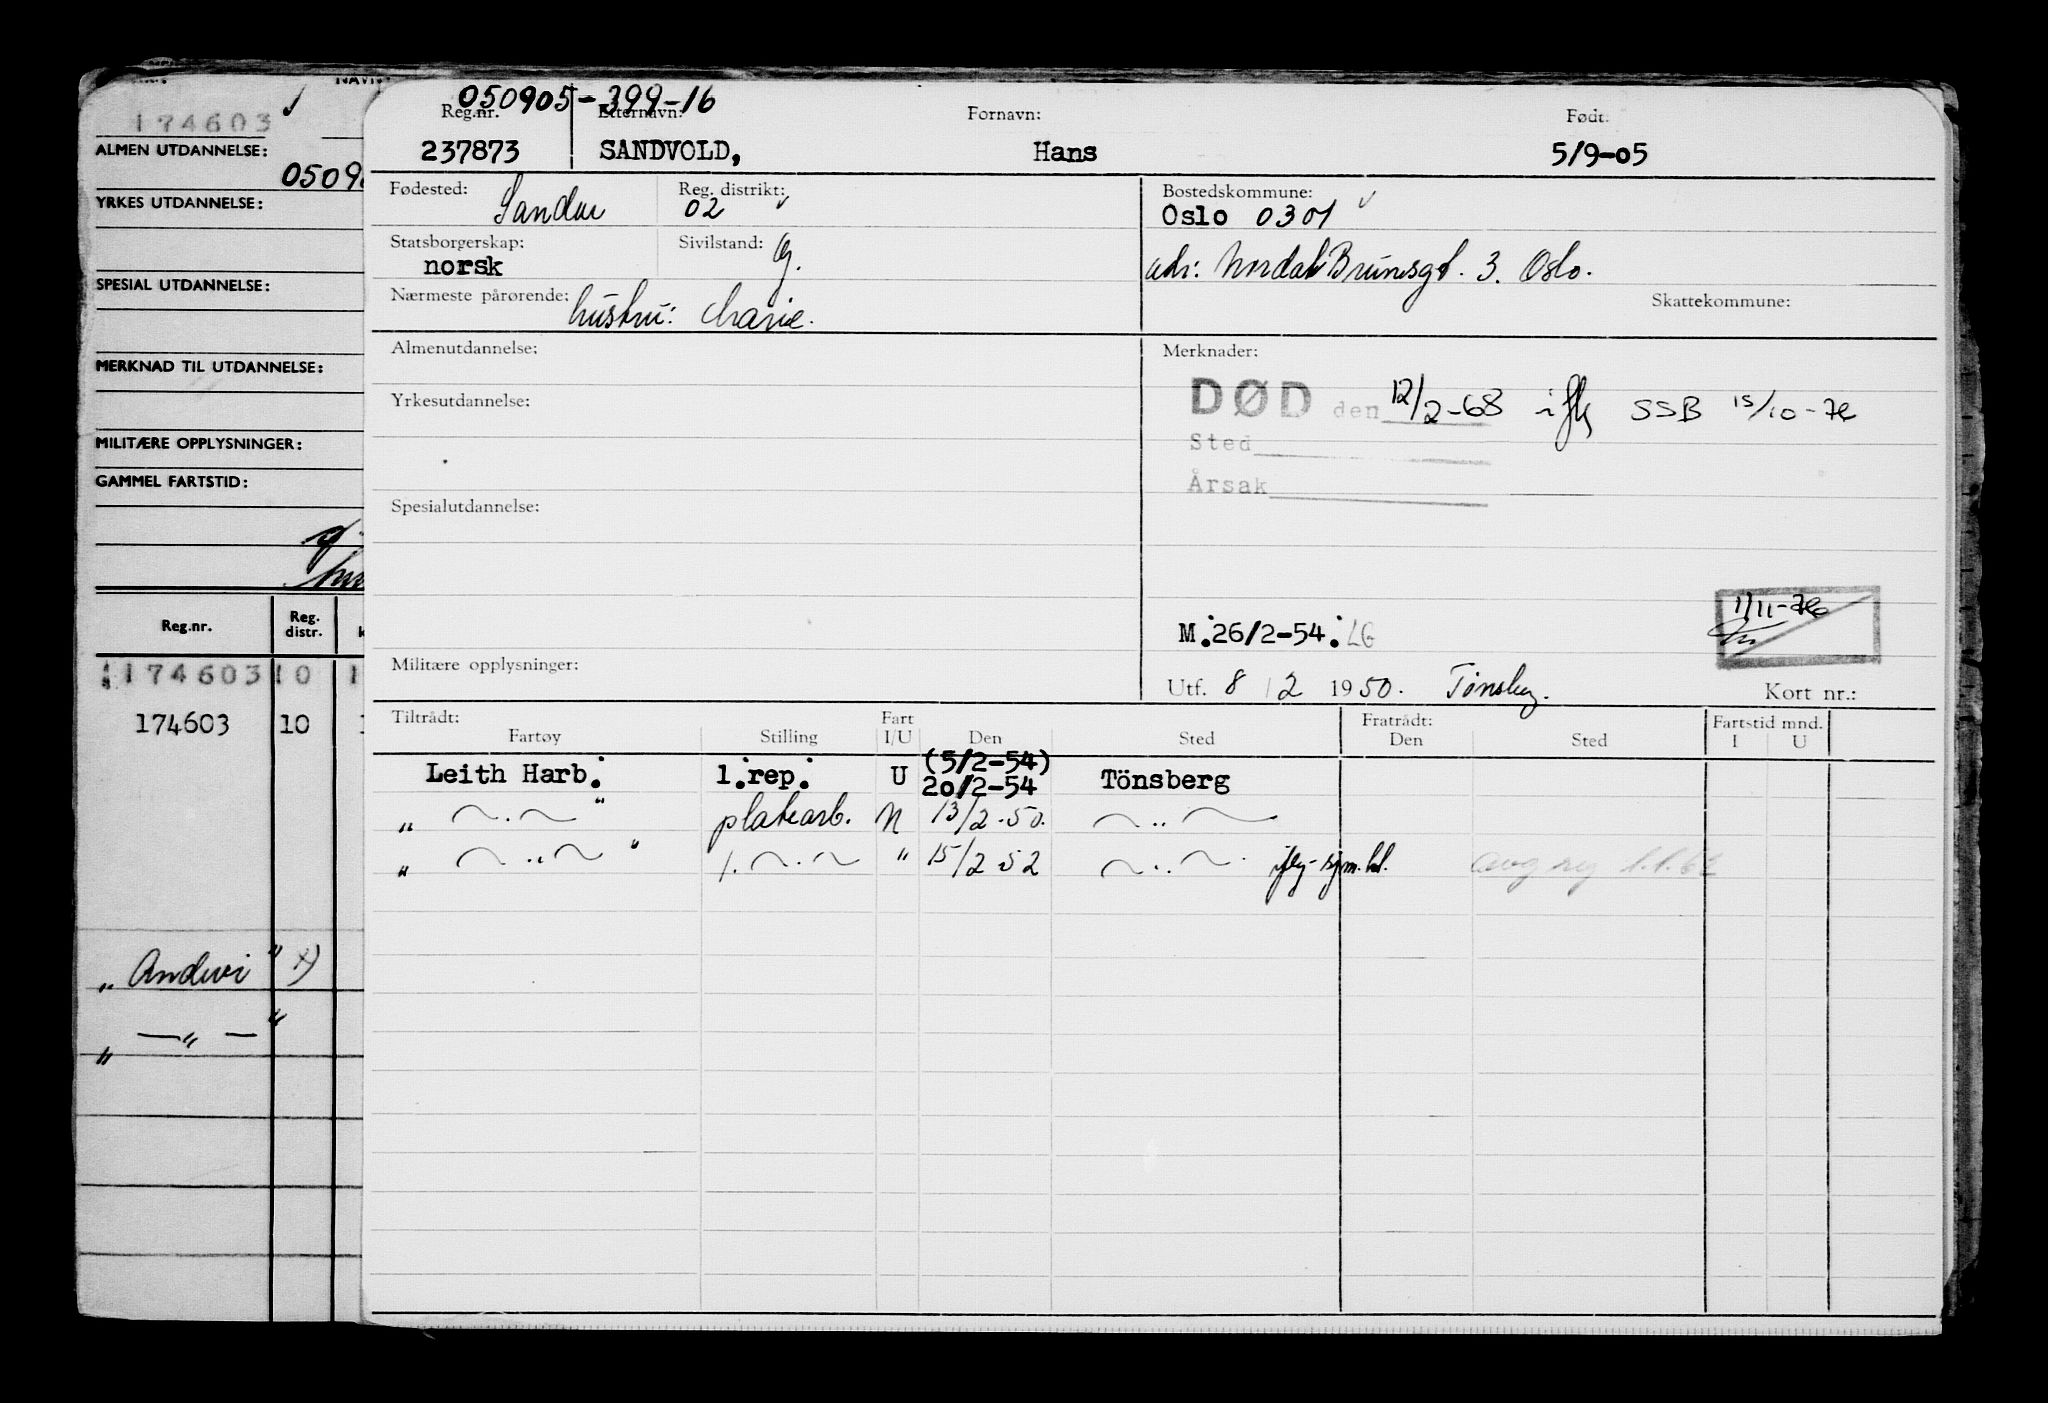 174603
ALMEN UTDANNELSE:
YRKES UTDANNELSE:
SPESIAL UTDANNELSE:
MERKNAD TIL UTDANNELSE:
MILITÆRE OPPLYSNINGER:
GAMMEL FARTSTID:
Reg.nr. Reg. distr.
174603 10
174603 10
050905-399-16
Reg.nr. Etternavn: Fornavn: Født:
237873 SANDVOLD, Hans 5/9-05
Fødested: Sandar Reg. distrikt: 02 Bostedskommune:
Oslo 0301
Statsborgerskap: Sivilstand: g.
norsk adr: Nordal Brunsgt. 3. Oslo.
Nærmeste pårørende: hustru: Marie. Skattekommune:
Almenutdannelse: Merknader:
DØD den 12/2-68 iflg SSB 15/10-76
Yrkesutdannelse:
Sted
Årsak
Spesialutdannelse:
1/11-76
M.26/2-54. LG
Militære opplysninger:
Utf. 8/2 1950. Tönsberg. Kort nr.:
Tiltrådt: Fart Fratrådt: Fartstid mnd.
Fartøy Stilling I/U Den Sted Den Sted I U
Leith Harb. 1.rep. U (5/2-54) 20/2-54 Tönsberg
" — . — " platearb. N 13/2-50. — .. —
" — .. — " 1. — .. — " 15/2-52 — .. —